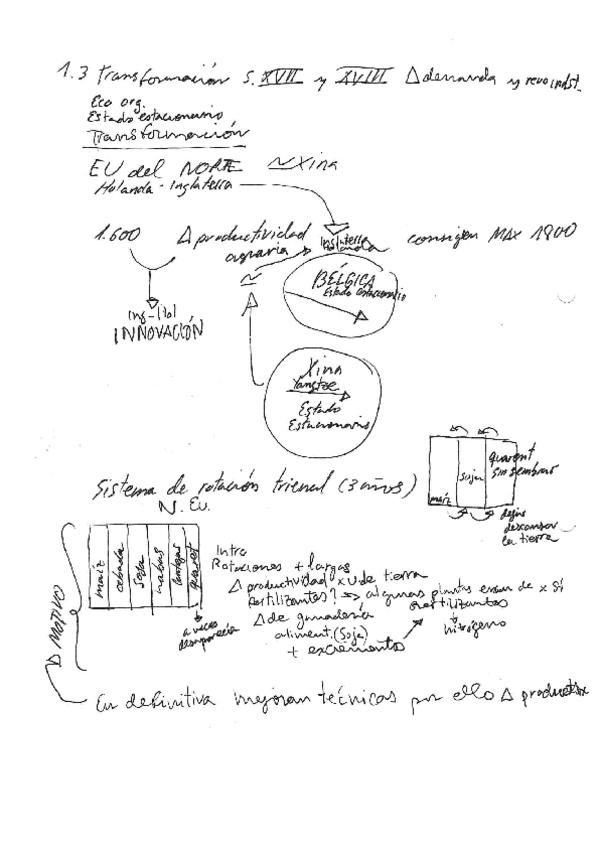 1.3 Transformación S. XVII y XVIII Δ demanda y revo indst.
Eco org.
Estado estacionario
Transformación
EU del NORTE ~ Xina
Holanda - Inglaterra
1.600 Δ productividad agraria
Inglaterra
Holanda
consigen MAX 1800
INNOVACIÓN
BÉLGICA
Estado estacionario
Xina
Yangtze
Estado
Estacionario
Sistema de rotación trienal (3 años)
N. Eu.
maíz
soja
guaret
sin sembrar
dejar
descansar
la tierra
maíz
cebada
soja
habas
guaret
a veces
desaparecía
Δ MOTIVO
Intro
Rotaciones + largas
Δ productividad x U de tierra
fertilizantes? => algunas plantas eran de x sí
fertilizantes
nitrógeno
Δ de ganadería
aliment. (Soja)
+ excremento
En definitiva mejoran técnicas por ello Δ